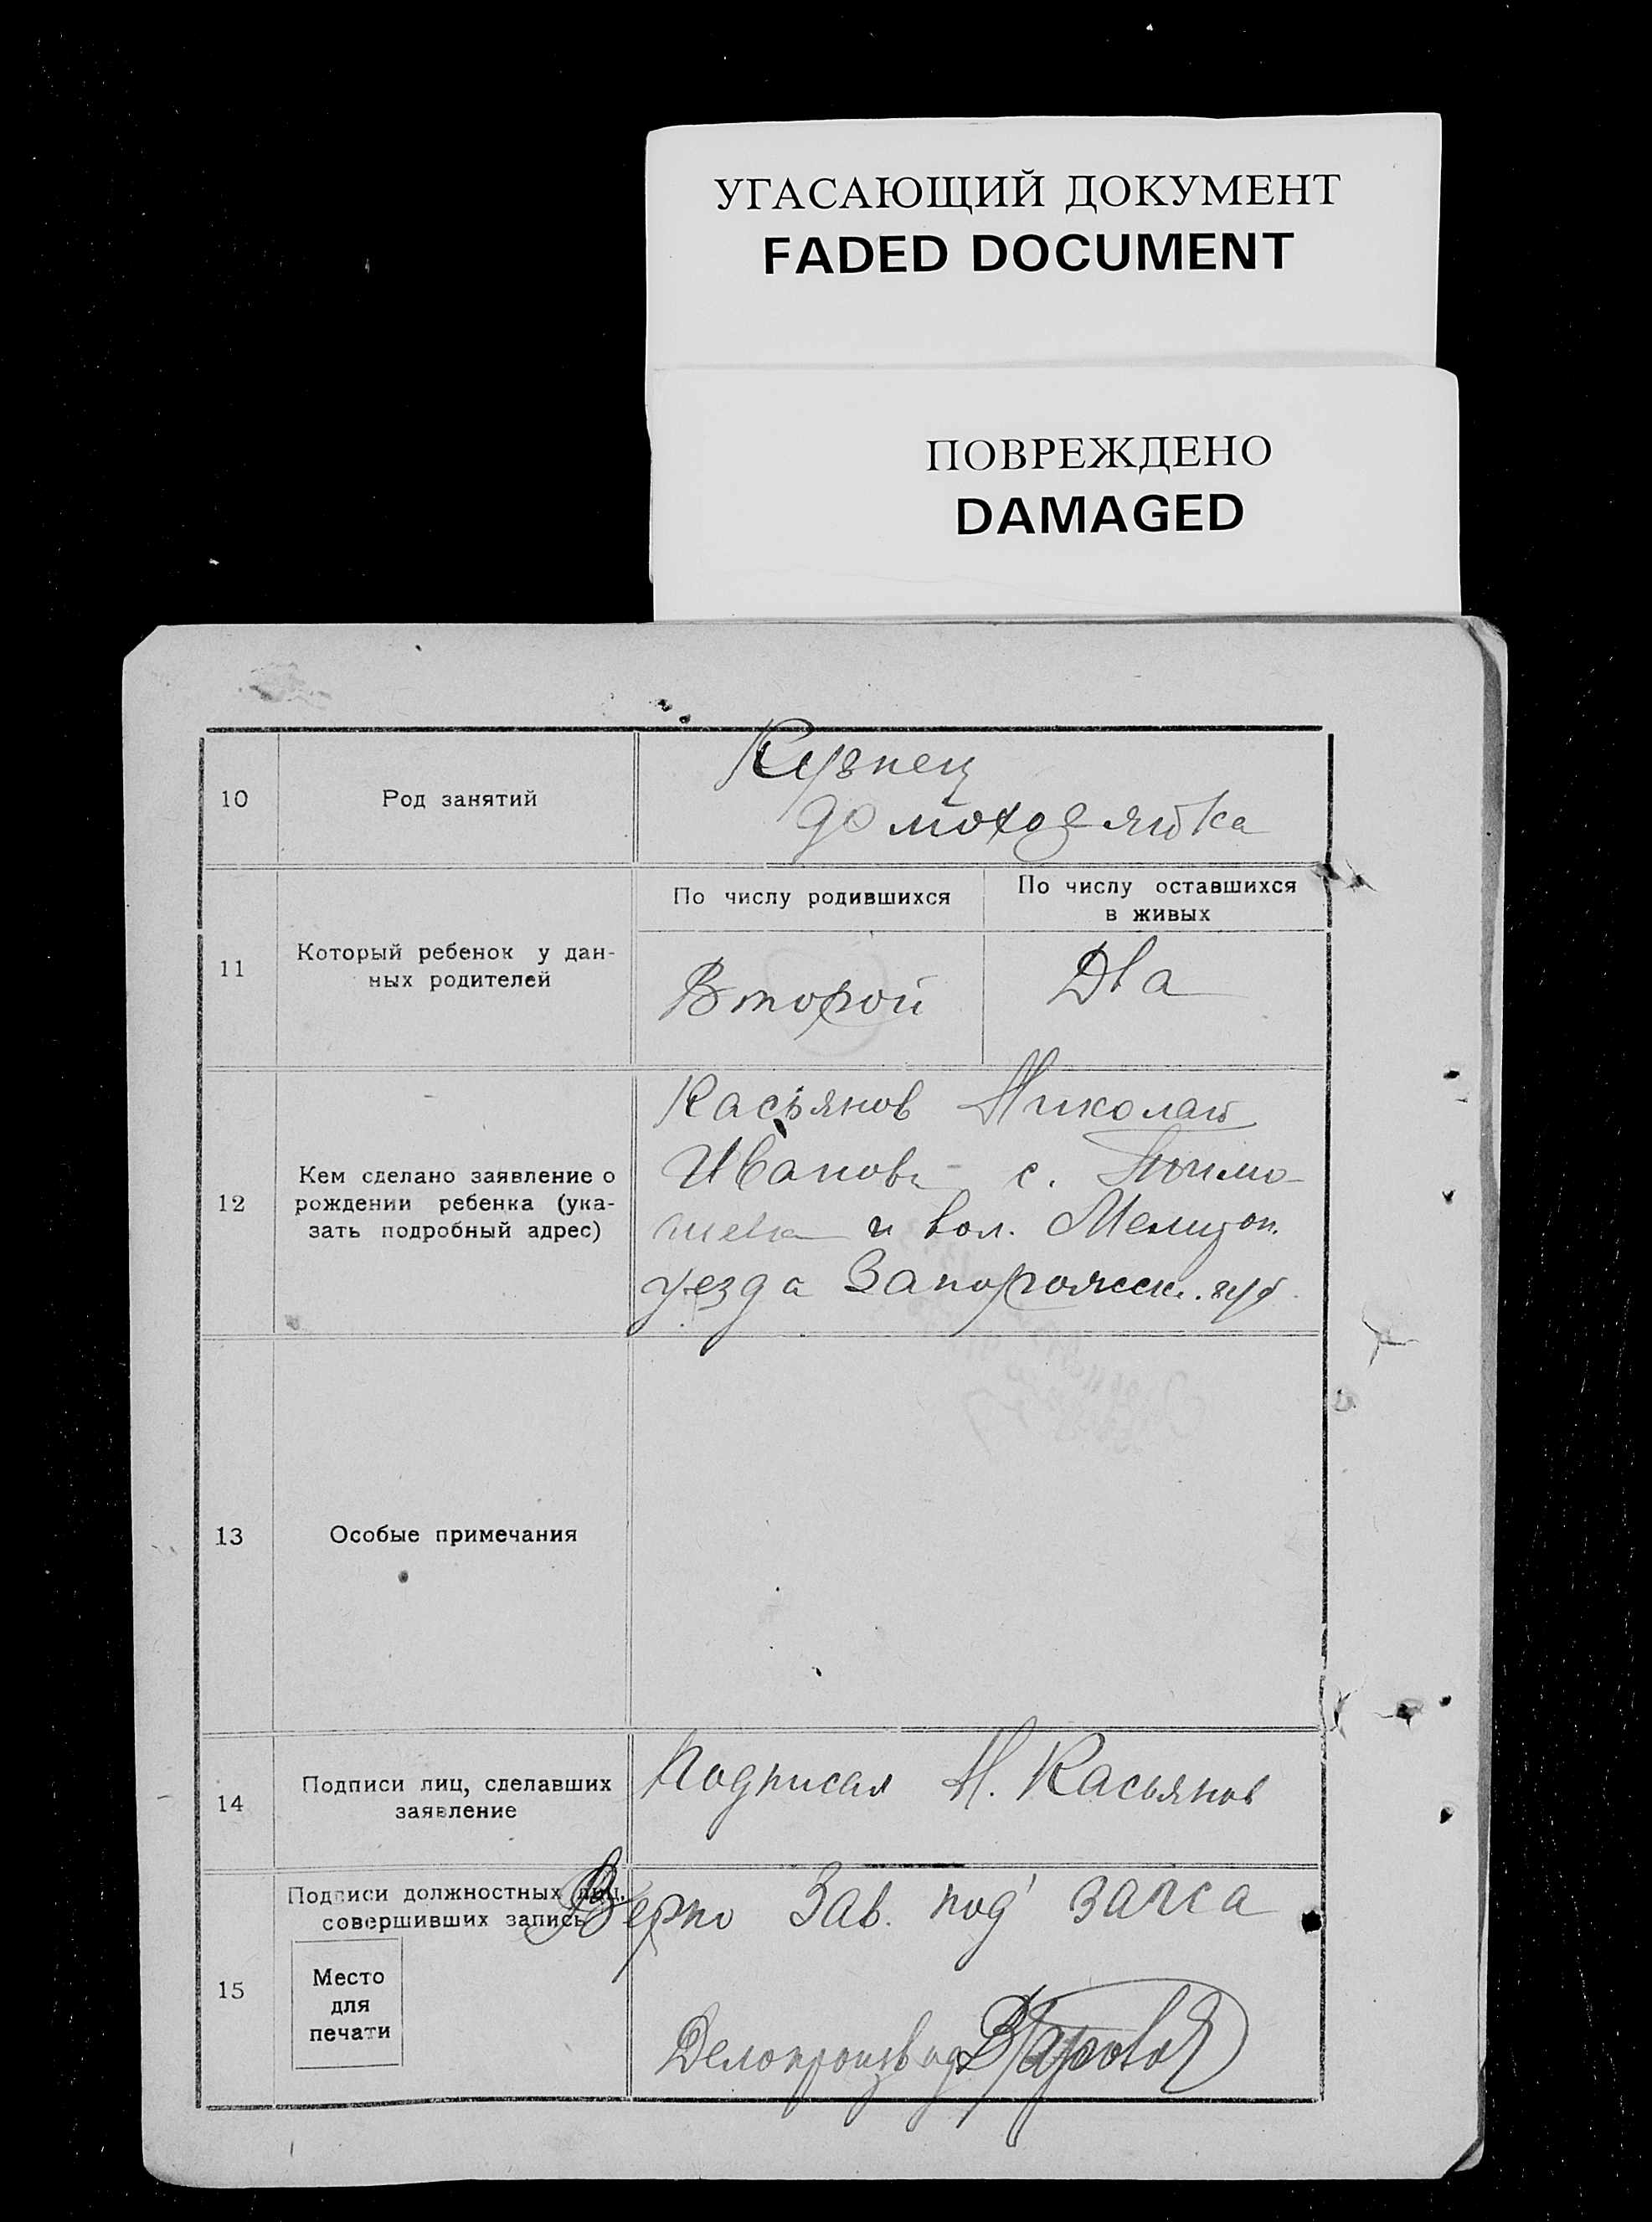 УГАСАЮЩИЙ ДОКУМЕНТ
FADED DOCUMENT
ПОВРЕЖДЕНО
DAMAGED
10
Род занятий
Кузнец
домохозяйка
11
Который ребенок у дан-
ных родителей
По числу родившихся
По числу оставшихся
в живых
Второй
Два
12
Кем сделано заявление о
рождении ребенка (ука-
зать подробный адрес)
Касьянов Николай
Иванов. с. Тимо-
шевка и вол. Мелитоп.
уезда Запорожск. губ.
13
Особые примечания
14
Подписи лиц, сделавших
заявление
Подписал Н. Касьянов
15
Подписи должностных лиц,
совершивших запись
Место
для
печати
Верно Зав. под' загса
Делопроизвод